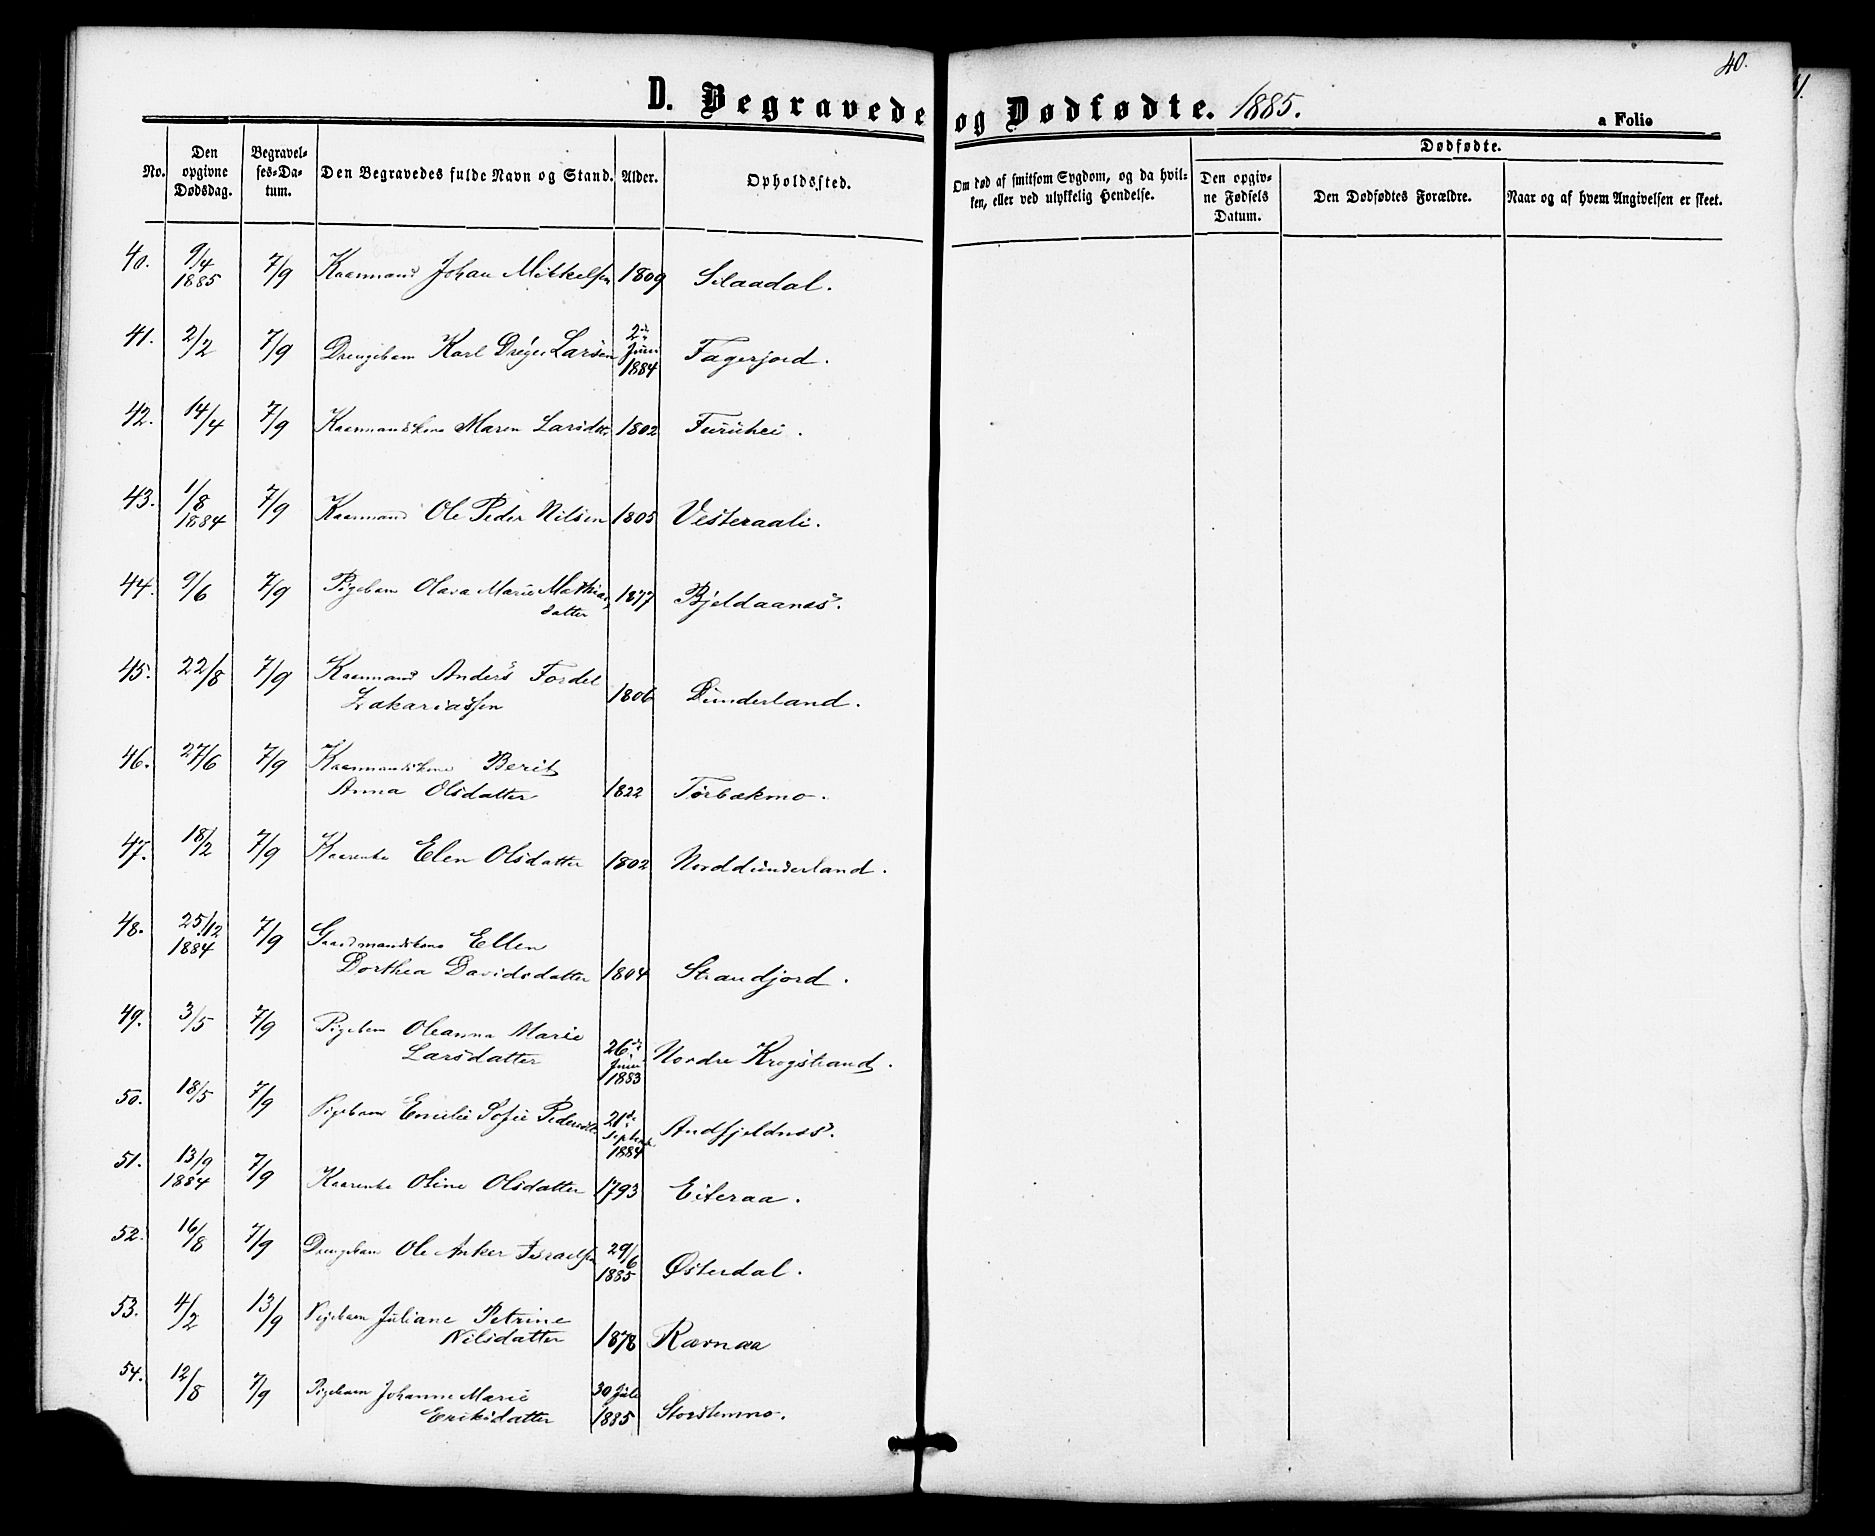 40.
D. Begravede og Dødfødte. 1885.
a Folio
No.
Den opgivne Dødsdag.
Begravelses-Datum.
Den Begravedes fulde Navn og Stand.
Alder.
Opholdssted.
Om død af smitsom Sygdom, og da hvilken, eller ved ulykkelig Hendelse.
Dødfødte.
Den opgivne Fødsels Datum.
Den Dødfødtes Forældre.
Naar og af hvem Angivelsen er skeet.
40. 9/4 1885 7/9 Kaarmand Johan Mikkelsen 1809
41. 2/2 7/9 Drengebarn Karl Larsen 2de Juni 1884 Fagerjord.
42. 14/4 7/9 Kaarmandskone Maren Larsdtr 1802 Furuhei.
43. 1/8 1884 7/9 Kaarmand Ole Peder Nilsen 1805 Vesteraali.
44. 9/6 7/9 Pigebarn Olava Marie Mathias
datter 1877 Bjeldaanes.
45. 22/8 7/9 Kaarmand Anders Fordel
Zakariassen 1806 Dunderland.
46. 27/6 7/9 Kaarmandskone Berit
Anna Olsdatter 1822 Torbækmo.
47. 18/2 7/9 Kaarenke Elen Olsdatter 1802 Norddunderland.
48. 25/12 1884 7/9 Gaardmandskone Ellen
Dorthea Davidsdatter 1804 Strandjord.
49. 3/5 7/9 Pigebarn Oleanna Marie
Larsdatter 26de Juni 1883 Nordre Krogstrand.
50. 18/5 7/9 Pigebarn Emilie Sofie Pedersdtr 21de Septemb. 1884 Andfjeldnes.
51. 13/9 1884 7/9 Kaarenke Oline Olsdatter 1793 Eiteraa.
52. 16/8 7/9 Drengebarn Ole Anker Israelsen 29/6 1885 Østerdal.
53. 4/2 13/9 Pigebarn Juliane Petrine
Nilsdatter 1878 Rævnaa
54. 12/8 7/9 Pigebarn Johanne Marie
Eriksdatter 30 Juli 1885 Storstenmo.